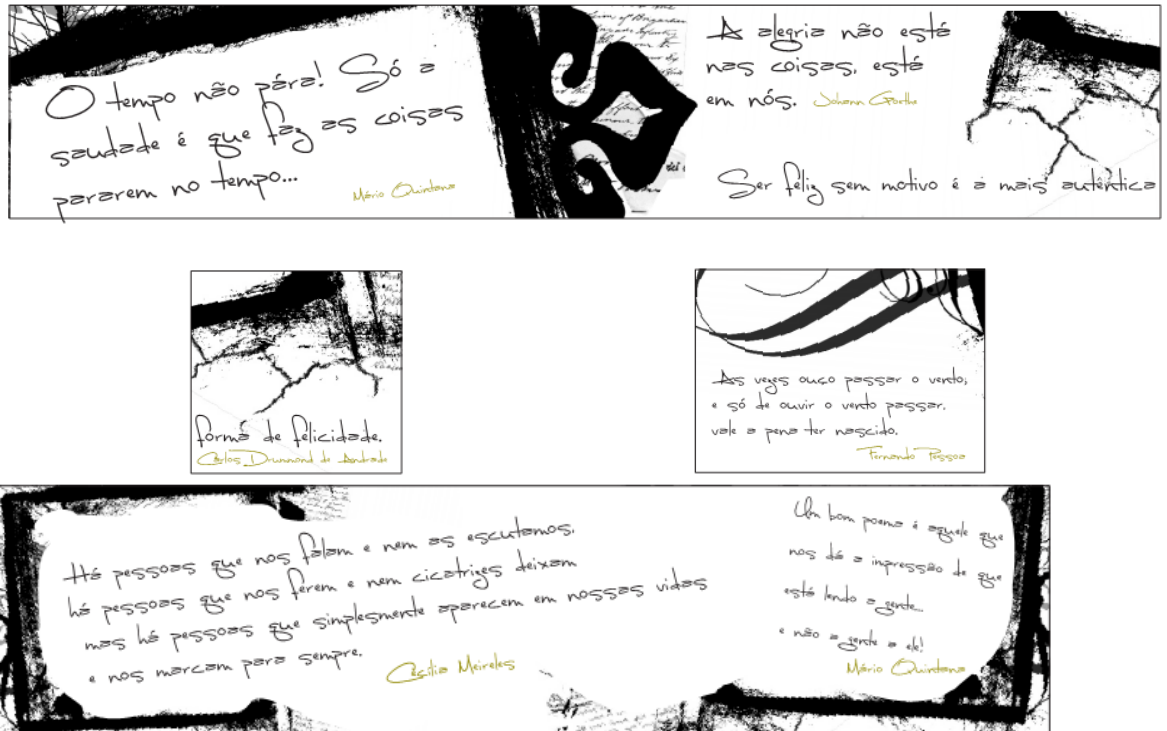 O tempo não pára! Só a
saudade é que faz as coisas
pararem no tempo...
Mário Quintana
A alegria não está
nas coisas, está
em nós. Johann Goethe
Ser feliz sem motivo é a mais autêntica
forma de felicidade.
Carlos Drummond de Andrade
As vezes ouço passar o vento;
e só de ouvir o vento passar,
vale a pena ter nascido.
Fernando Pessoa
Há pessoas que nos falam e nem as escutamos,
há pessoas que nos ferem e nem cicatrizes deixam
mas há pessoas que simplesmente aparecem em nossas vidas
e nos marcam para sempre.
Cecília Meireles
Um bom poema é aquele que
nos dá a impressão de que
está lendo a gente...
e não a gente a ele!
Mário Quintana